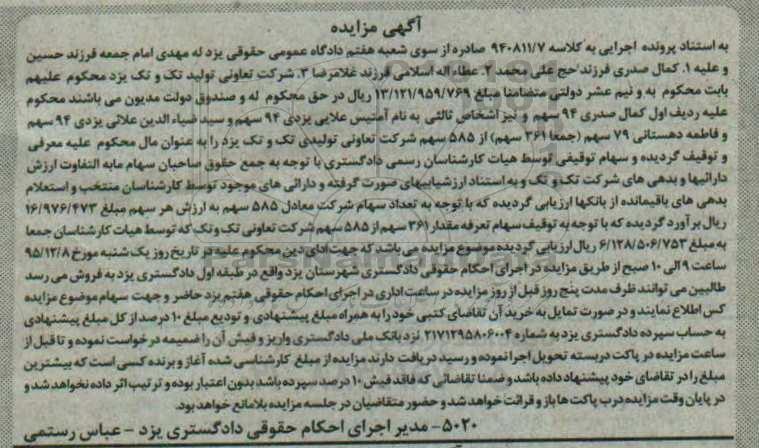 آگهی مزایده
به استناد پرونده اجرایی به کلاسه ۹۴۰۸۱۱/۷ صادره از سوی شعبه هفتم دادگاه عمومی حقوقی یزد له مهدی امام جمعه فرزند حسین
و علیه ۱. کمال صدری فرزند حج علی محمد ۲. عطاء اله اسلامی فرزند غلامرضا ۳. شرکت تعاونی تولید تک و تک یزد محکوم علیهم
بابت محکوم به و نیم عشر دولتی متضامنا مبلغ ۱۳/۱۲۱/۹۵۹/۷۶۹ ریال در حق محکوم له و صندوق دولت مدیون می باشند محکوم
علیه ردیف اول کمال صدری ۹۴ سهم و نیز اشخاص ثالثی به نام آمتیس علایی یزدی ۹۴ سهم و سید ضیاء الدین علائی یزدی ۹۴ سهم
و فاطمه دهستانی ۷۹ سهم (جمعا ۳۶۱ سهم) از ۵۸۵ سهم شرکت تعاونی تولیدی تک و تک یزد را به عنوان مال محکوم علیه معرفی
و توقیف گردیده و سهام توقیفی توسط هیات کارشناسان رسمی دادگستری با توجه به جمع حقوق صاحبان سهام مابه التفاوت ارزش
دارائیها و بدهی های شرکت تک و تک و به استناد ارزشیابیهای صورت گرفته و دارائی های موجود توسط کارشناسان منتخب و استعلام
بدهی های باقیمانده از بانکها ارزیابی گردیده که با توجه به تعداد سهام شرکت معادل ۵۸۵ سهم به ارزش هر سهم مبلغ ۱۶/۹۷۶/۴۷۳
ریال برآورد گردیده که با توجه به توقیف سهام تعرفه مقدار ۳۶۱ سهم از ۵۸۵ سهم شرکت تعاونی تک و تک که توسط هیات کارشناسان جمعا
به مبلغ ۶/۱۲۸/۵۰۶/۷۵۳ ریال ارزیابی گردیده موضوع مزایده می باشد که جهت ادای دین محکوم علیه در تاریخ روز یک شنبه مورخ ۹۵/۱۲/۸
ساعت ۹ الی ۱۰ صبح از طریق مزایده در اجرای احکام حقوقی دادگستری شهرستان یزد واقع در طبقه اول دادگستری یزد به فروش می رسد
طالبین می توانند ظرف مدت پنج روز قبل از روز مزایده در ساعت اداری در اجرای احکام حقوقی هفتم یزد حاضر و جهت سهام موضوع مزایده
کس اطلاع نمایند و در صورت تمایل به خرید آن تقاضای کتبی خود را به همراه مبلغ پیشنهادی و تودیع مبلغ ۱۰ درصد از کل مبلغ پیشنهادی
به حساب سپرده دادگستری یزد به شماره ۲۱۷۱۲۹۵۸۰۶۰۰۴ نزد بانک ملی دادگستری واریز و فیش آن را ضمیمه درخواست نموده و تا قبل از
ساعت مزایده در پاکت دربسته تحویل اجرا نموده و رسید دریافت دارند مزایده از مبلغ کارشناسی شده آغاز و برنده کسی است که بیشترین
مبلغ را در تقاضای خود پیشنهاد داده باشد و ضمنا تقاضائی که فاقد فیش ۱۰ درصد سپرده باشد بدون اعتبار بوده و ترتیب اثر داده نخواهد شد و
در پایان وقت مزایده درب پاکت ها باز و قرائت خواهد شد و حضور متقاضیان در جلسه مزایده بلامانع خواهد بود.
۵۰۲۰- مدیر اجرای احکام حقوقی دادگستری یزد - عباس رستمی